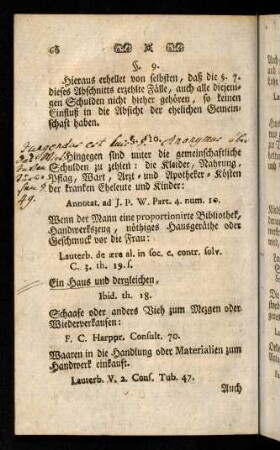 68
§. 9.
Hieraus erhellet von selbsten, daß die §. 7.
dieses Abschnitts erzehlte Fälle, auch alle diejeni-
gen Schulden nicht hieher gehören, so keinen
Einfluß in die Absicht der ehelichen Gemein-
schaft haben.
Jungendus est huic §. 10. Anonymus
Hingegen sind unter die gemeinschaftliche
Schulden zu zehlen: die Klaider, Nahrung,
Pflag, Wart, Arzt- und Apotheker-Kösten
der kranken Eheleute und Kinder:
49.
Annotat. ad J. P. W. Part. 4. num. 10.
Wenn der Mann eine proportionirte Bibliothek,
Handwerkszeug, nöthiges Hausgeräthe oder
Geschmuck vor die Frau:
Lauterb. de ære al. in soc. c. contr. solv.
C. 3. th. 19. f.
Ein Haus und dergleichen,
Ibid. th. 18.
Schaafe oder anders Vieh zum Mezgen oder
Wiederverkaufen:
F. C. Harppr. Consult. 70.
Waaren in die Handlung oder Materialien zum
Handwerk einkauft.
Lauterb. V. 2. Conf. Tub. 47.
Auch